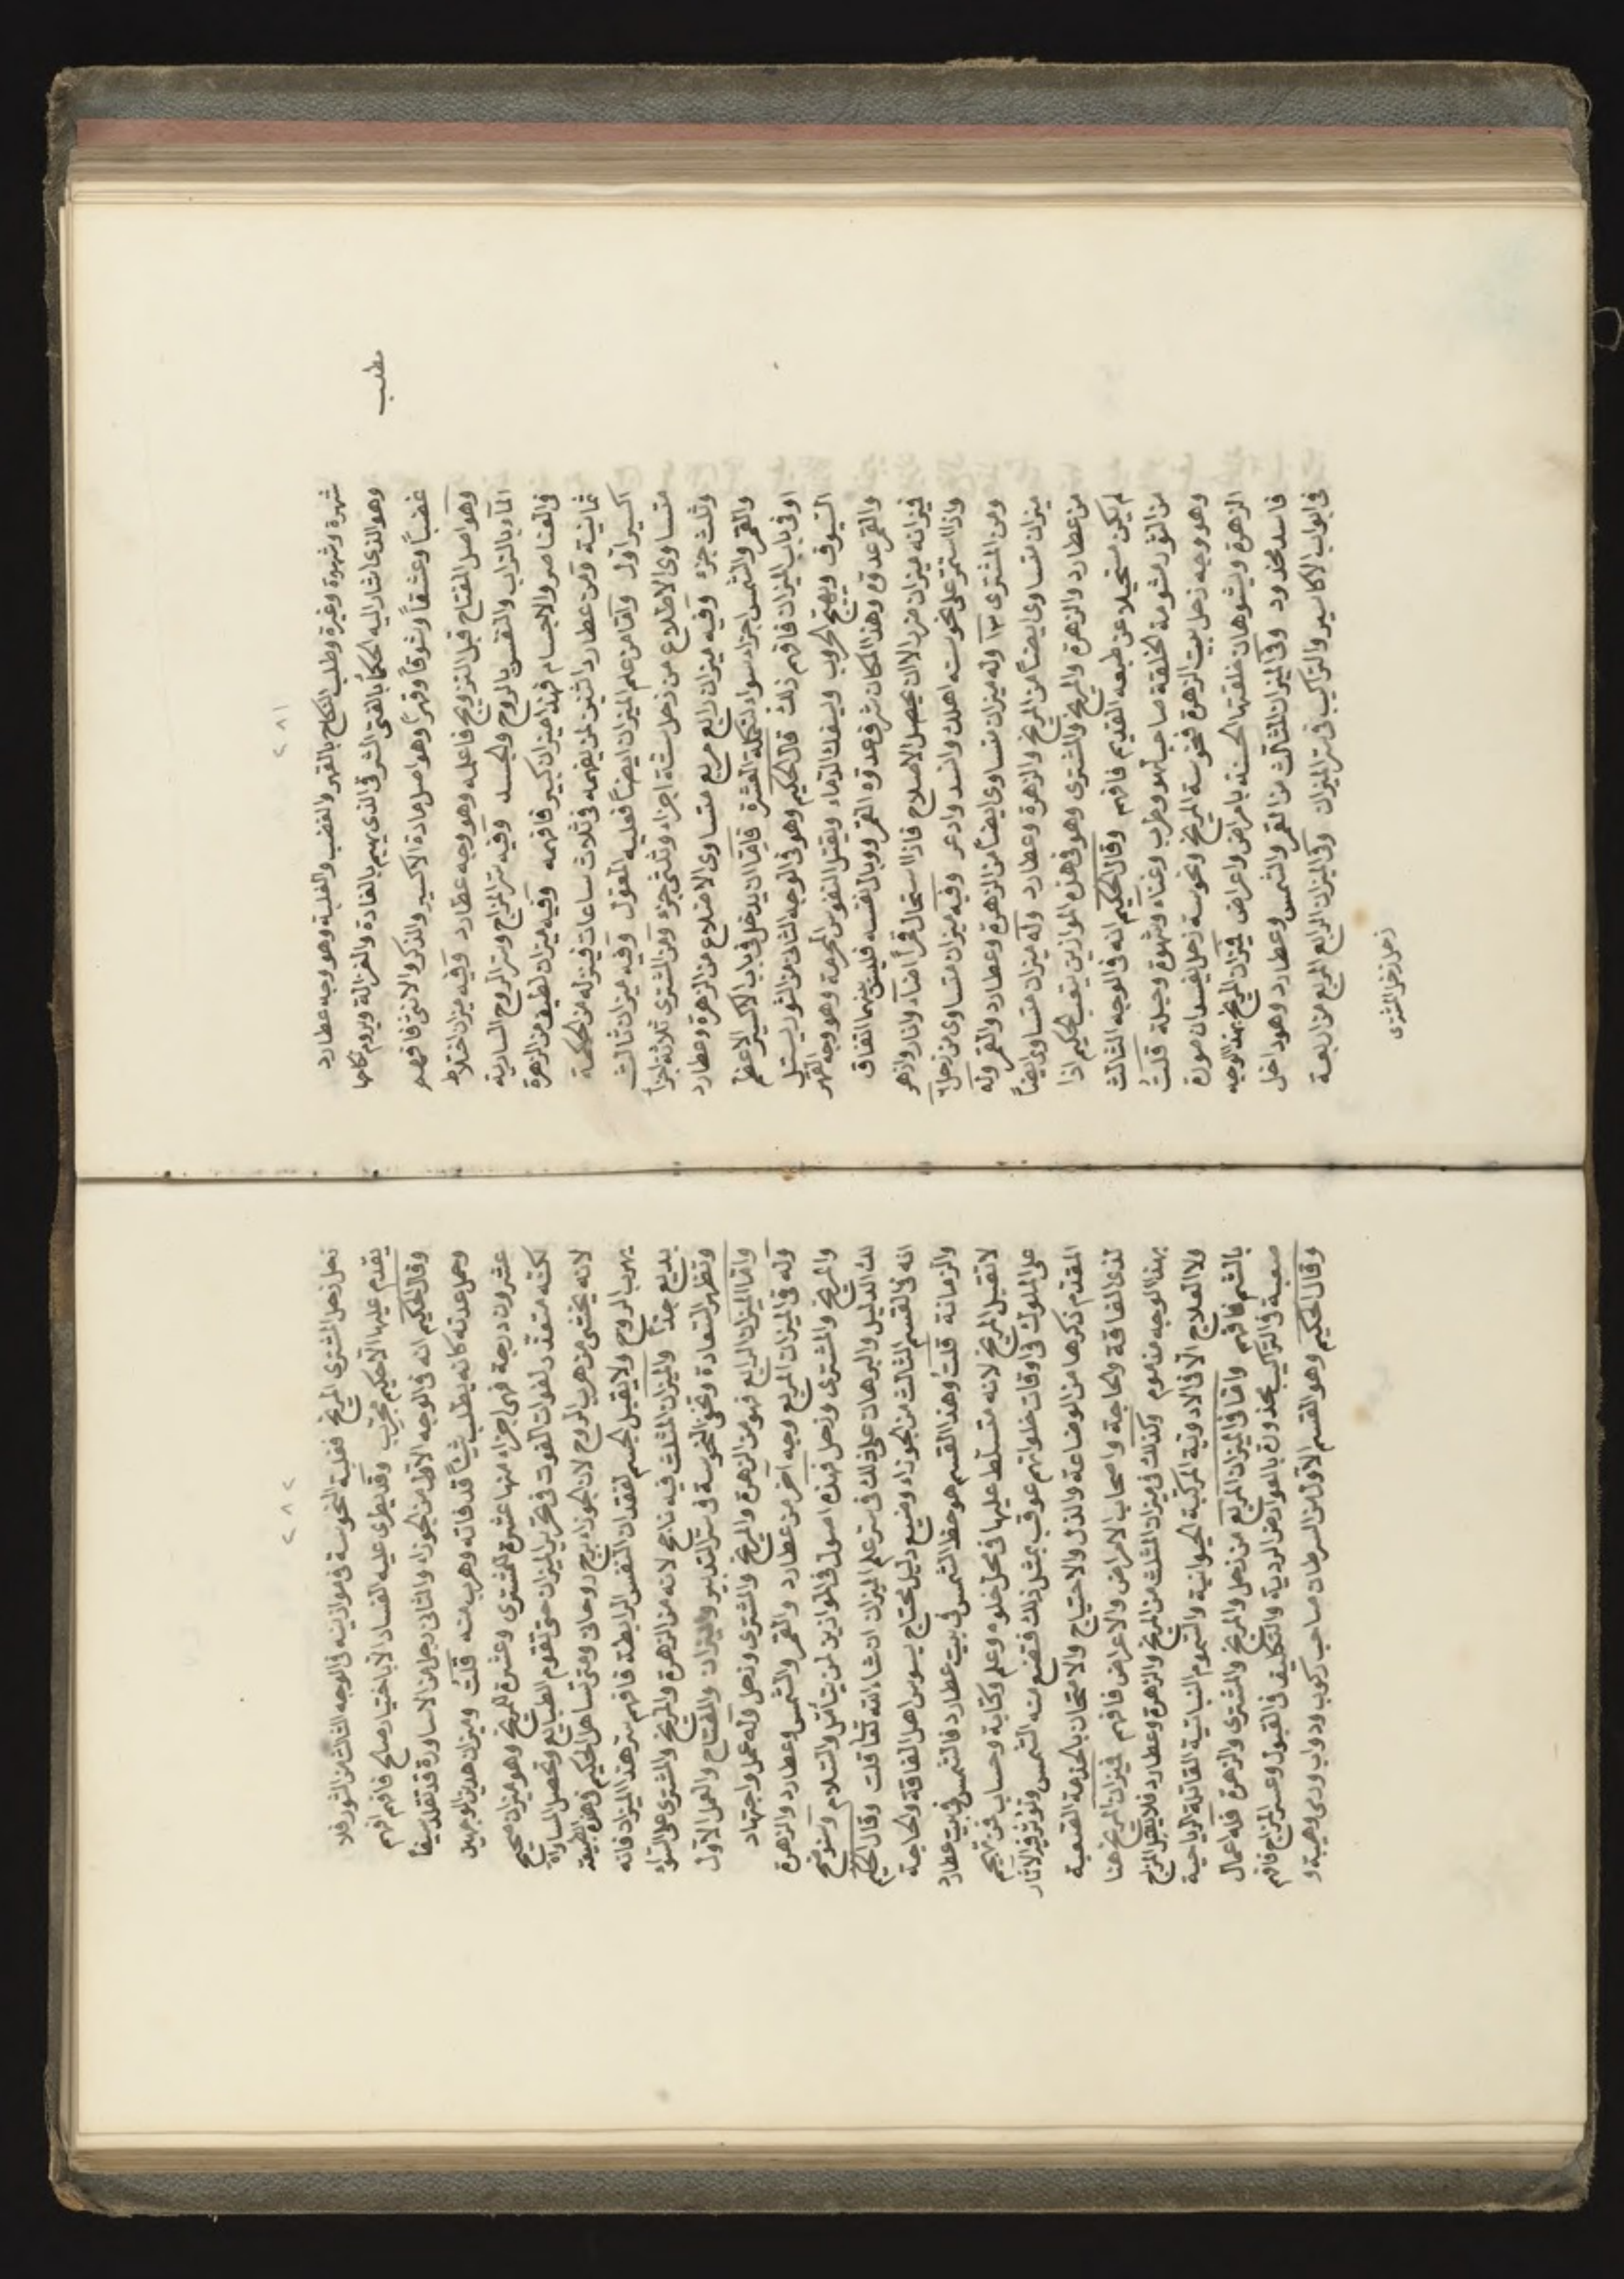 ٢٨١
شهرة وشهوة وغيرة وطلب النكاح بالقهر والغضب والغلبة وهو وجه عطارد
وهو الذى اشار اليه الحكماء بالفتى الشرقى الذى يهيم بالغادة والغزالة ويروم نكاحها
مطلب
غضباً وعشقاً وشوقاً وقهراً وهو اصل مادة الاكسير والذكر والانثى فافهم
وهو اصل المفتاح قبل التزويج فاعلمه وهو وجه عطارد وفيه ميزان اختلاط
الماء بالتراب والنفس بالروح والجسد وفيه سر المزاج وسر الروح السارية
فى العناصر والاجسام فهذا ميزان كبير فافهمه وفيه ميزان لطيف من الزهرة
ثمانية ومن عطارد اثنين لمن يفهمه فى ثلاث ساعات فيزنه من الحكمة
اكسيراً اول واما من علم الميزان ايضاً فعليه المعول وفيه ميزان ثالث
متساوى الاضلاع من زحل ستة اجزاء وثلثى جزء ومن المشترى ثلاثة اجزاء
وثلث جزء وفيه ميزان رابع مربع متساوى الاضلاع من الزهرة وعطارد
والقمر والشمس اجزاء سواء لتكملة العشرة فاما ان يدخل فى باب الاكسير الاعظم
او فى باب الميزان فافهم ذلك قال الحكيم وهو فى الوجه الثانى من الثور يستل
السيوف ويهيج الحروب ويسفك الدماء ويقتل النفوس المحرمة وهو وجه القمر
والقمر عدوه وهذا المكان شرف عدوه القمر ووبال نفسه فليس بينهما اتفاق
فيزانه ميزان مزد الا ان يحصل الاصلاح فاذا استحال قمراً اضاء وانار وازهر
واذا استمر على نحوسته اهلك وافسد وادعر وفيه ميزان متساوى من زحل ٦
ومن المشترى ٣ وله ميزان متساوى ايضاً من الزهرة وعطارد والقمر وله
ميزان متساوى ايضاً من المريخ والزهرة وعطارد وله ميزان متساوى ايضاً
من عطارد والزهرة والمريخ والمشترى وهو فى هذه الموازين يتعب الحكيم اذا
لم يكن مستحيلا عن طبعه القديم فافهم وقال الحكيم انه فى الوجه الثالث
من الثور مشومة الخلقة صاحب لهو وطرب وغناء وشهوة وحيلة قلت
وهو وجه زحل بيت الزهرة فنحوسة المريخ ونحوسة زحل يفسدان صورة
الزهرة ويشوهان خلقتها الحسنة بامراض واعراض فيزان المريخ بهذا الوجه
فاسد محذود وفى الميزان المثالث من القمر والشمس وعطارد وهو داخل
فى ابواب الاكاسير والتراكيب فى سر الميزان وفى الميزان الرابع المربع من اربعة
زحل زحل المشترى
٢٨٢
زحل زحل المشترى المريخ فغلبة النحوسة فى موازينه فى الوجه الثالث من الثور فلا
يقدم عليها الا حكيم مجرب وقد يطرى عليه الفساد الا باختيار صالح فافهم افهم
وقال الحكيم انه فى الوجه الاول من الجوزاء والثانى رجل من الاساورة قد تقلد سيفاً
وحمل عدته كانه يطلب شيئاً قد فاته وهرب منه قلت وميزان هذين الوجهين
عشرون درجة فهى اجزاء منها عشرة للمشترى وعشرة للمريخ وهو ميزان صحيح
لكنه متعقد لفوات الفوت فى تحرير الميزان حتى تقوم الطبائع وتحصل المساواة
لانه يخشى من هرب الروح لان الجوزاء برج روحانى ومتى تساهل الحكيم فى هذه الطبيعة
يهرب الروح ولا يقبل الجسم لفقدان النفس الرابطة فافهم سر هذا الميزان فانه
بديع جداً والميزان المثلث فيه ناجح لانه من الزهرة والمريخ والمشترى على السواء
وتظهر السعادة وتخفى النحوسة فى سر التدبير والميزان والمفتاح والعمل الاول
واما الميزان الرابع فهو من الزهرة والمريخ والمشترى وزحل وله عمل واجتهاد
وله فى الميزان المربع وجه آخر من عطارد والقمر والشمس وعطارد والزهرة
والمريخ والمشترى وزحل فهذه اصول فى الموازين لمن يتأمل والسلام وسنوضح
لك الدليل والبرهان على ذلك فى سر علم الميزان ان شاء الله تعالى قلت وقال الحكيم
انه فى القسم الثالث من الجوزاء وضيع دليل محتاج يسوس اهل الفاقة والحاجة
والزمانة قلت وهذا القسم هو حظ الشمس فى بيت عطارد فالشمس فى بيت عطارد
لا تقبل المريخ لانه متسلط عليها فى محل خلوه وعلم وكتابة وحساب فمن تهجم
على الملوك فى اوقات خلواتهم عوقب بمثل ذلك فتضع منه الشمس وتؤثر فيه الآثار
المقدم ذكرها من الوضاعة والذل والاحتياج والامتحان بالخدمة الصعبة
لذى الفاقة والحاجة واصحاب الامراض والاعراض فافهم فيزان المريخ هنا
بهذا الوجه مذموم وكذلك فى ميزان المثلث من المريخ والزهرة وعطارد فلا يقبل المزاج
ولا العلاج الا فى الادوية المركبة الحيوانية والسموم النباتية القاتلة الرياحية
بالشم فافهم واما فى الميزان المربع من زحل والمريخ والمشترى والزهرة فله اعمال
صعبة فى التراكيب محذورة بالعوارض الردية والتكليف فى القبول وعسر المزاج فافهم
وقال الحكيم وهو القسم الاول من السرطان صاحب ركوب ودواب وردى وحمية و